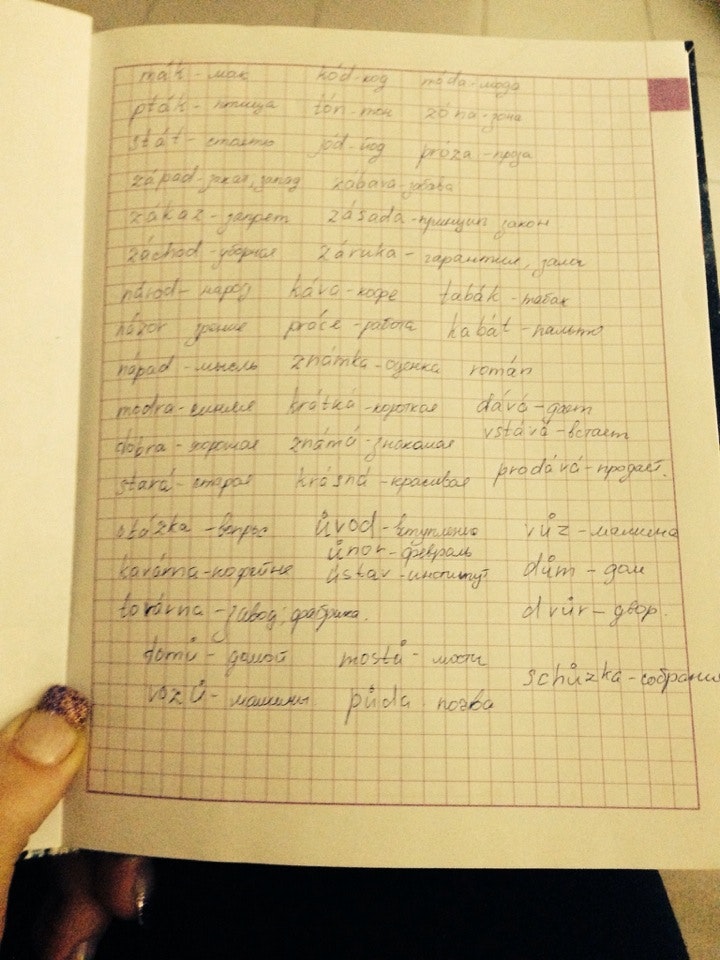 mák - мак kód - код móda - мода
pták - птица tón - тон zóna - зона
stát - стоять jód - йод próza - проза
západ - закат, запад zábava - забава
zákaz - запрет zásada - принцип закон
záchod - уборная záruka - гарантия, залог
národ - народ káva - кофе tabák - табак
názor зрение práce - работа kabát - пальто
nápad - мысль známka - оценка román
modrá - синяя krátká - короткая dává - дает
dobrá - хорошая známá - знакомая vstává - встает
stará - старая krásná - красивая prodává - продает.
otázka - вопрос úvod - вступление vůz - машина
únor - февраль
kavárna - кофейня ústav - институт dům - дом
továrna - завод, фабрика. dvůr - двор.
domů - домой mostů - мосты schůzka - собрание
vozů - машины půda почва